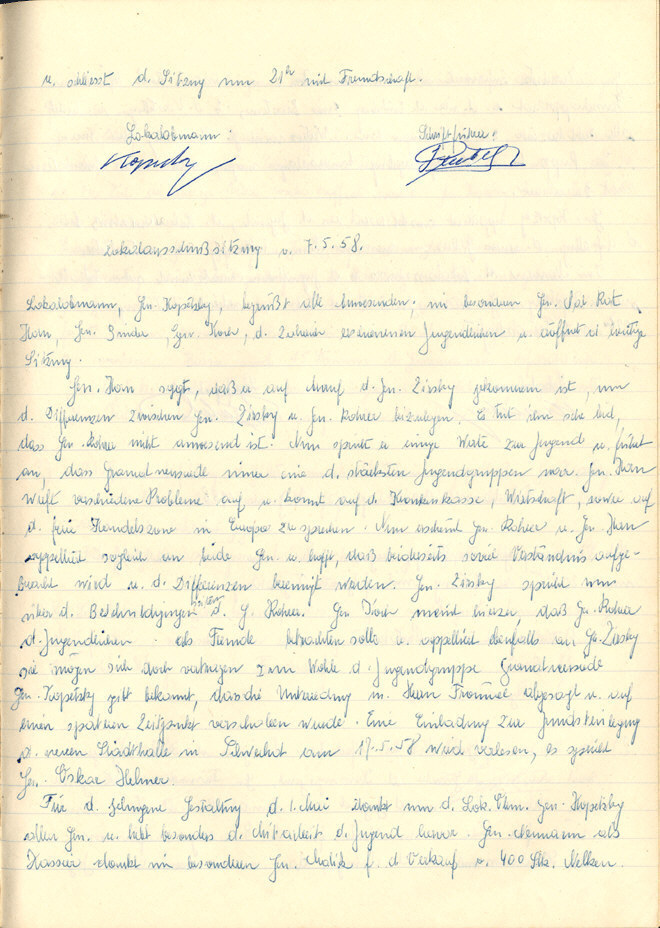 u. schliesst d. Sitzung um 21h mit Freundschaft.
Lokalobmann: Schriftführer:
Kopetzky
Lokalausschußsitzung v. 7.5.58.
Lokalobmann, Gen. Kopetzky, begrüßt alle Anwesenden, im besonderen Gen. Nat. Rat
Horn, Gen. Gen. Korer, d. Zahlreich erschienenen Jugendlichen u. eröffnet d. heutige
Sitzung.
Gen. Horn sagt, daß er auf Anruf d. Gen. Zirsky gekommen ist, um
d. Differenzen zwischen Gen. Zirsky u. Gen. Rohrer beizulegen. Es tut ihm sehr leid,
dass Gen. Rohrer nicht anwesend ist. Nun spricht er einige Worte zur Jugend u. führt
an, dass Gramatneusiedl immer eine d. stärksten Jugendgruppen war. Gen. Horn
wirft verschiedene Probleme auf u. kommt auf d. Krankenkasse, Wirtschaft, sowie auf
d. freie Handelszone in Europa zu sprechen. Nun erscheint Gen. Rohrer u. Gen. Horn
appelliert sogleich an beide Gen. u. hofft, daß beiderseits soviel Verständnis aufge-
bracht wird u. d. Differenzen bereinigt werden. Gen. Zirsky spricht nun
über d. Beschuldigungen d. G. Rohrer. Gen. Korer meint hiezu, daß Gen. Rohrer
d. Jugendlichen als Fremde betrachten solle u. appelliert ebenfalls an Gen. Zirsky
sie mögen sich doch vertragen zum Wohle d. Jugendgruppe Gramatneusiedl
Gen. Kopetzky gibt bekannt, dass die Unterredung m. Herrn Frömmel abgesagt u. auf
einen späteren Zeitpunkt verschoben wurde. Eine Einladung zur Grundsteinlegung
d. neuen Stadthalle in Schwechat am 17.5.58 wird verlesen, es spricht
Gen. Oskar Helmer.
Für d. gelungene Gestaltung d. 1. Mai dankt nun d. Lok. Obm. Gen. Kopetzky
allen Gen. u. hebt besonders d. Mitarbeit d. Jugend hervor. Gen. als
Kassier dankt im besonderen Gen. Malik f. d. Verkauf v. 400 Stk. Nelken.